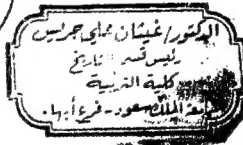 الدكتور/ غيثان علي جريس
رئيس قسم التاريخ
كلية التربية
جامعة الملك سعود - فرع أبها.